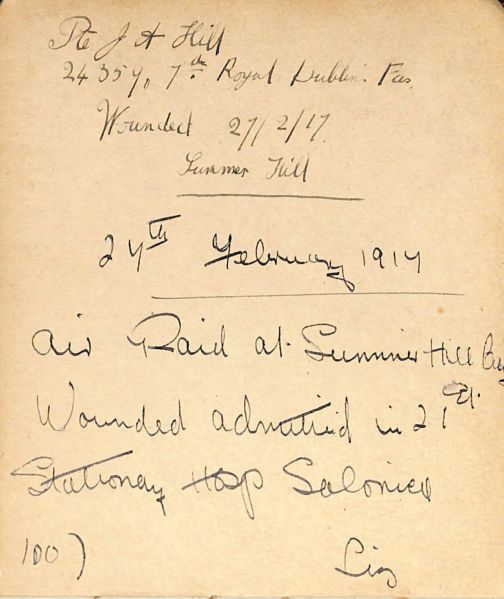 Pte J A Hill
24359, 7th Royal Dublin Fus
Wounded 27/2/17
Summer Hill
27th February 1917
Air Raid at Summer Hill
Wounded admitted in 21st
Stationary Hosp Salonica
100)